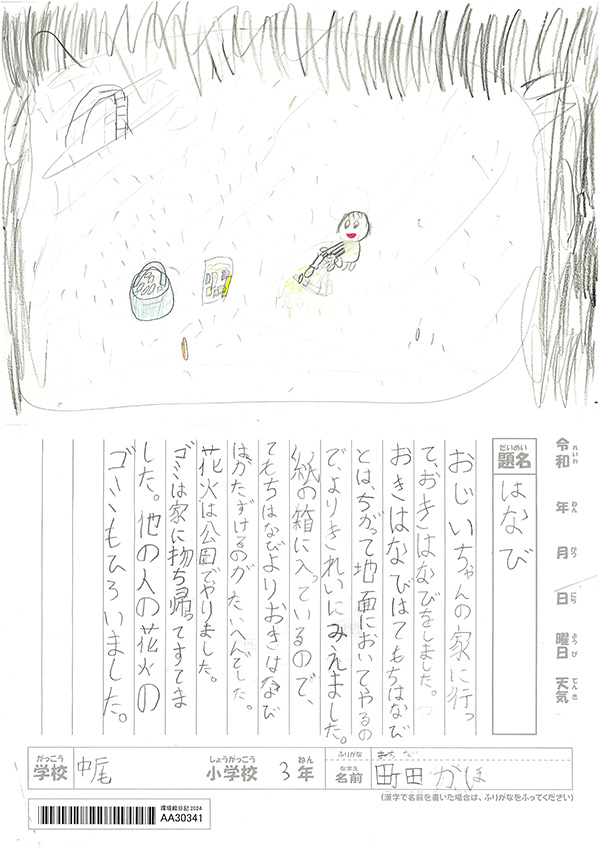 令和 年 月 日 曜日 天気
れいわ ねん がつ にち ようび てんき
だいめい
題名
はなび
おじいちゃんの家に行っ
て、おきはなびをしました。
おきはなびはてもちはなび
とは、ちがって地面においてやるの
で、よりきれいにみえました。
紙の箱に入っているので、
てもちはなびよりおきはなび
はかたずけるのがたいへんでした。
花火は公園でやりました。
ゴミは家に持ち帰ってすてま
した。他の人の花火の
ゴミもひろいました。
がっこう
学校
中尾
しょうがっこう
小学校
3
ねん
年
ふりがな
なまえ
名前
町田 かほ
(漢字で名前を書いた場合は、ふりがなをふってください)
環境絵日記2024
AA30341